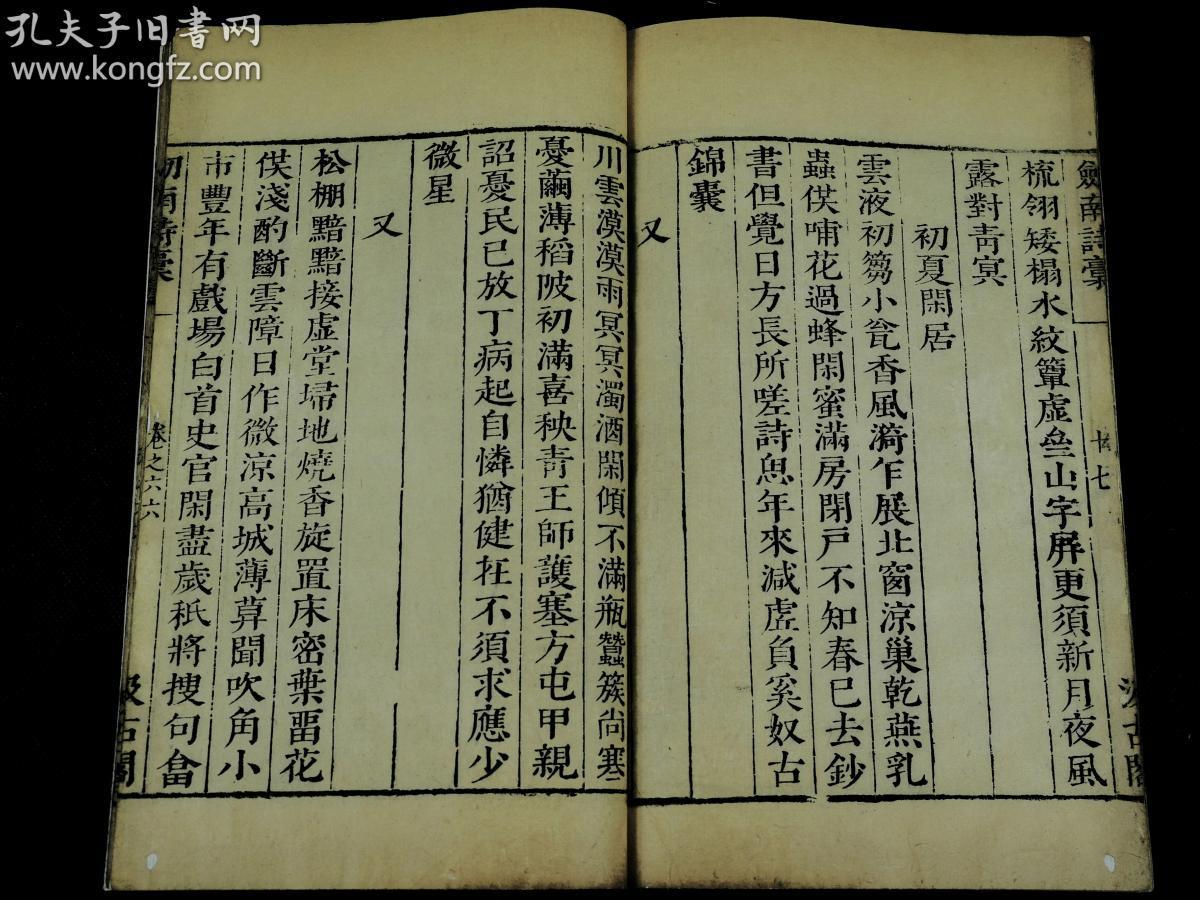 孔夫子旧书网
www.kongfz.com
劒南詩稾
十七
汲古閣
梳翎矮榻水紋簟虛𠫤山字屏更須新月夜風
露對靑冥
初夏閑居
雲液初篘小瓮香風漪乍展北窗涼巢乾燕乳
蟲供哺花過蜂閑蜜滿房閉戸不知春已去鈔
書但覺日方長所嗟詩思年來减虗負奚奴古
錦囊
又
川雲漠漠雨冥冥濁酒閑傾不滿瓶蠶簇尚寒
憂繭薄稻陂初滿喜秧靑王師護塞方屯甲親
詔憂民已放丁病起自憐猶健在不須求應少
微星
又
松棚黯黯接虛堂埽地燒香旋置床密葉畱花
供淺酌斷雲障日作微涼高城薄暮聞吹角小
市豐年有戲場白首史官閑盡歲秖將搜句畣
劒南詩稾
卷之六六
汲古閣